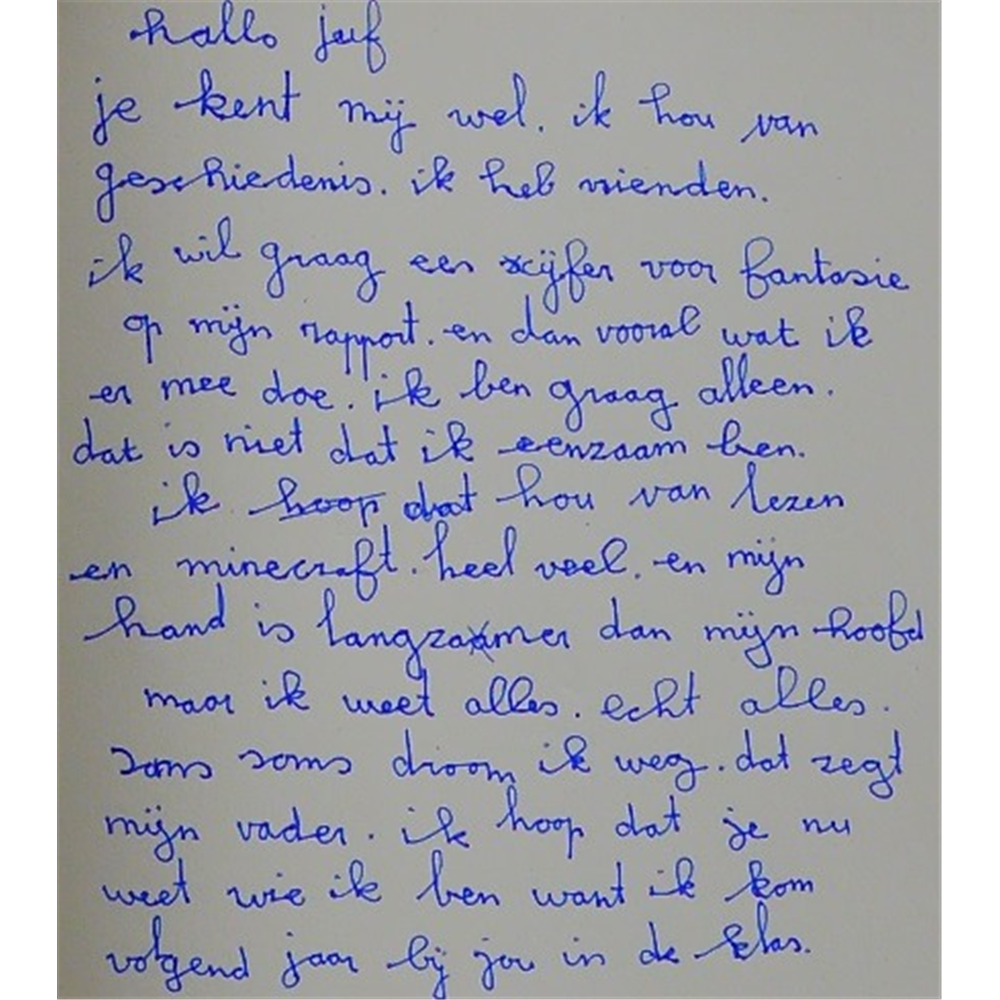 hallo juf
je kent mij wel. ik hou van
geschiedenis. ik heb vrienden.
ik wil graag een xijfer voor fantasie
op mijn rapport. en dan vooral wat ik
er mee doe. ik ben graag alleen.
dat is niet dat ik eenzaam ben.
ik hoop dat hou van lezen
en minecraft. heel veel. en mijn
hand is langzamer dan mijn hoofd
maar ik weet alles. echt alles.
soms soms droom ik weg. dat zegt
mijn vader. ik hoop dat je nu
weet wie ik ben want ik kom
volgend jaar bij jou in de klas.